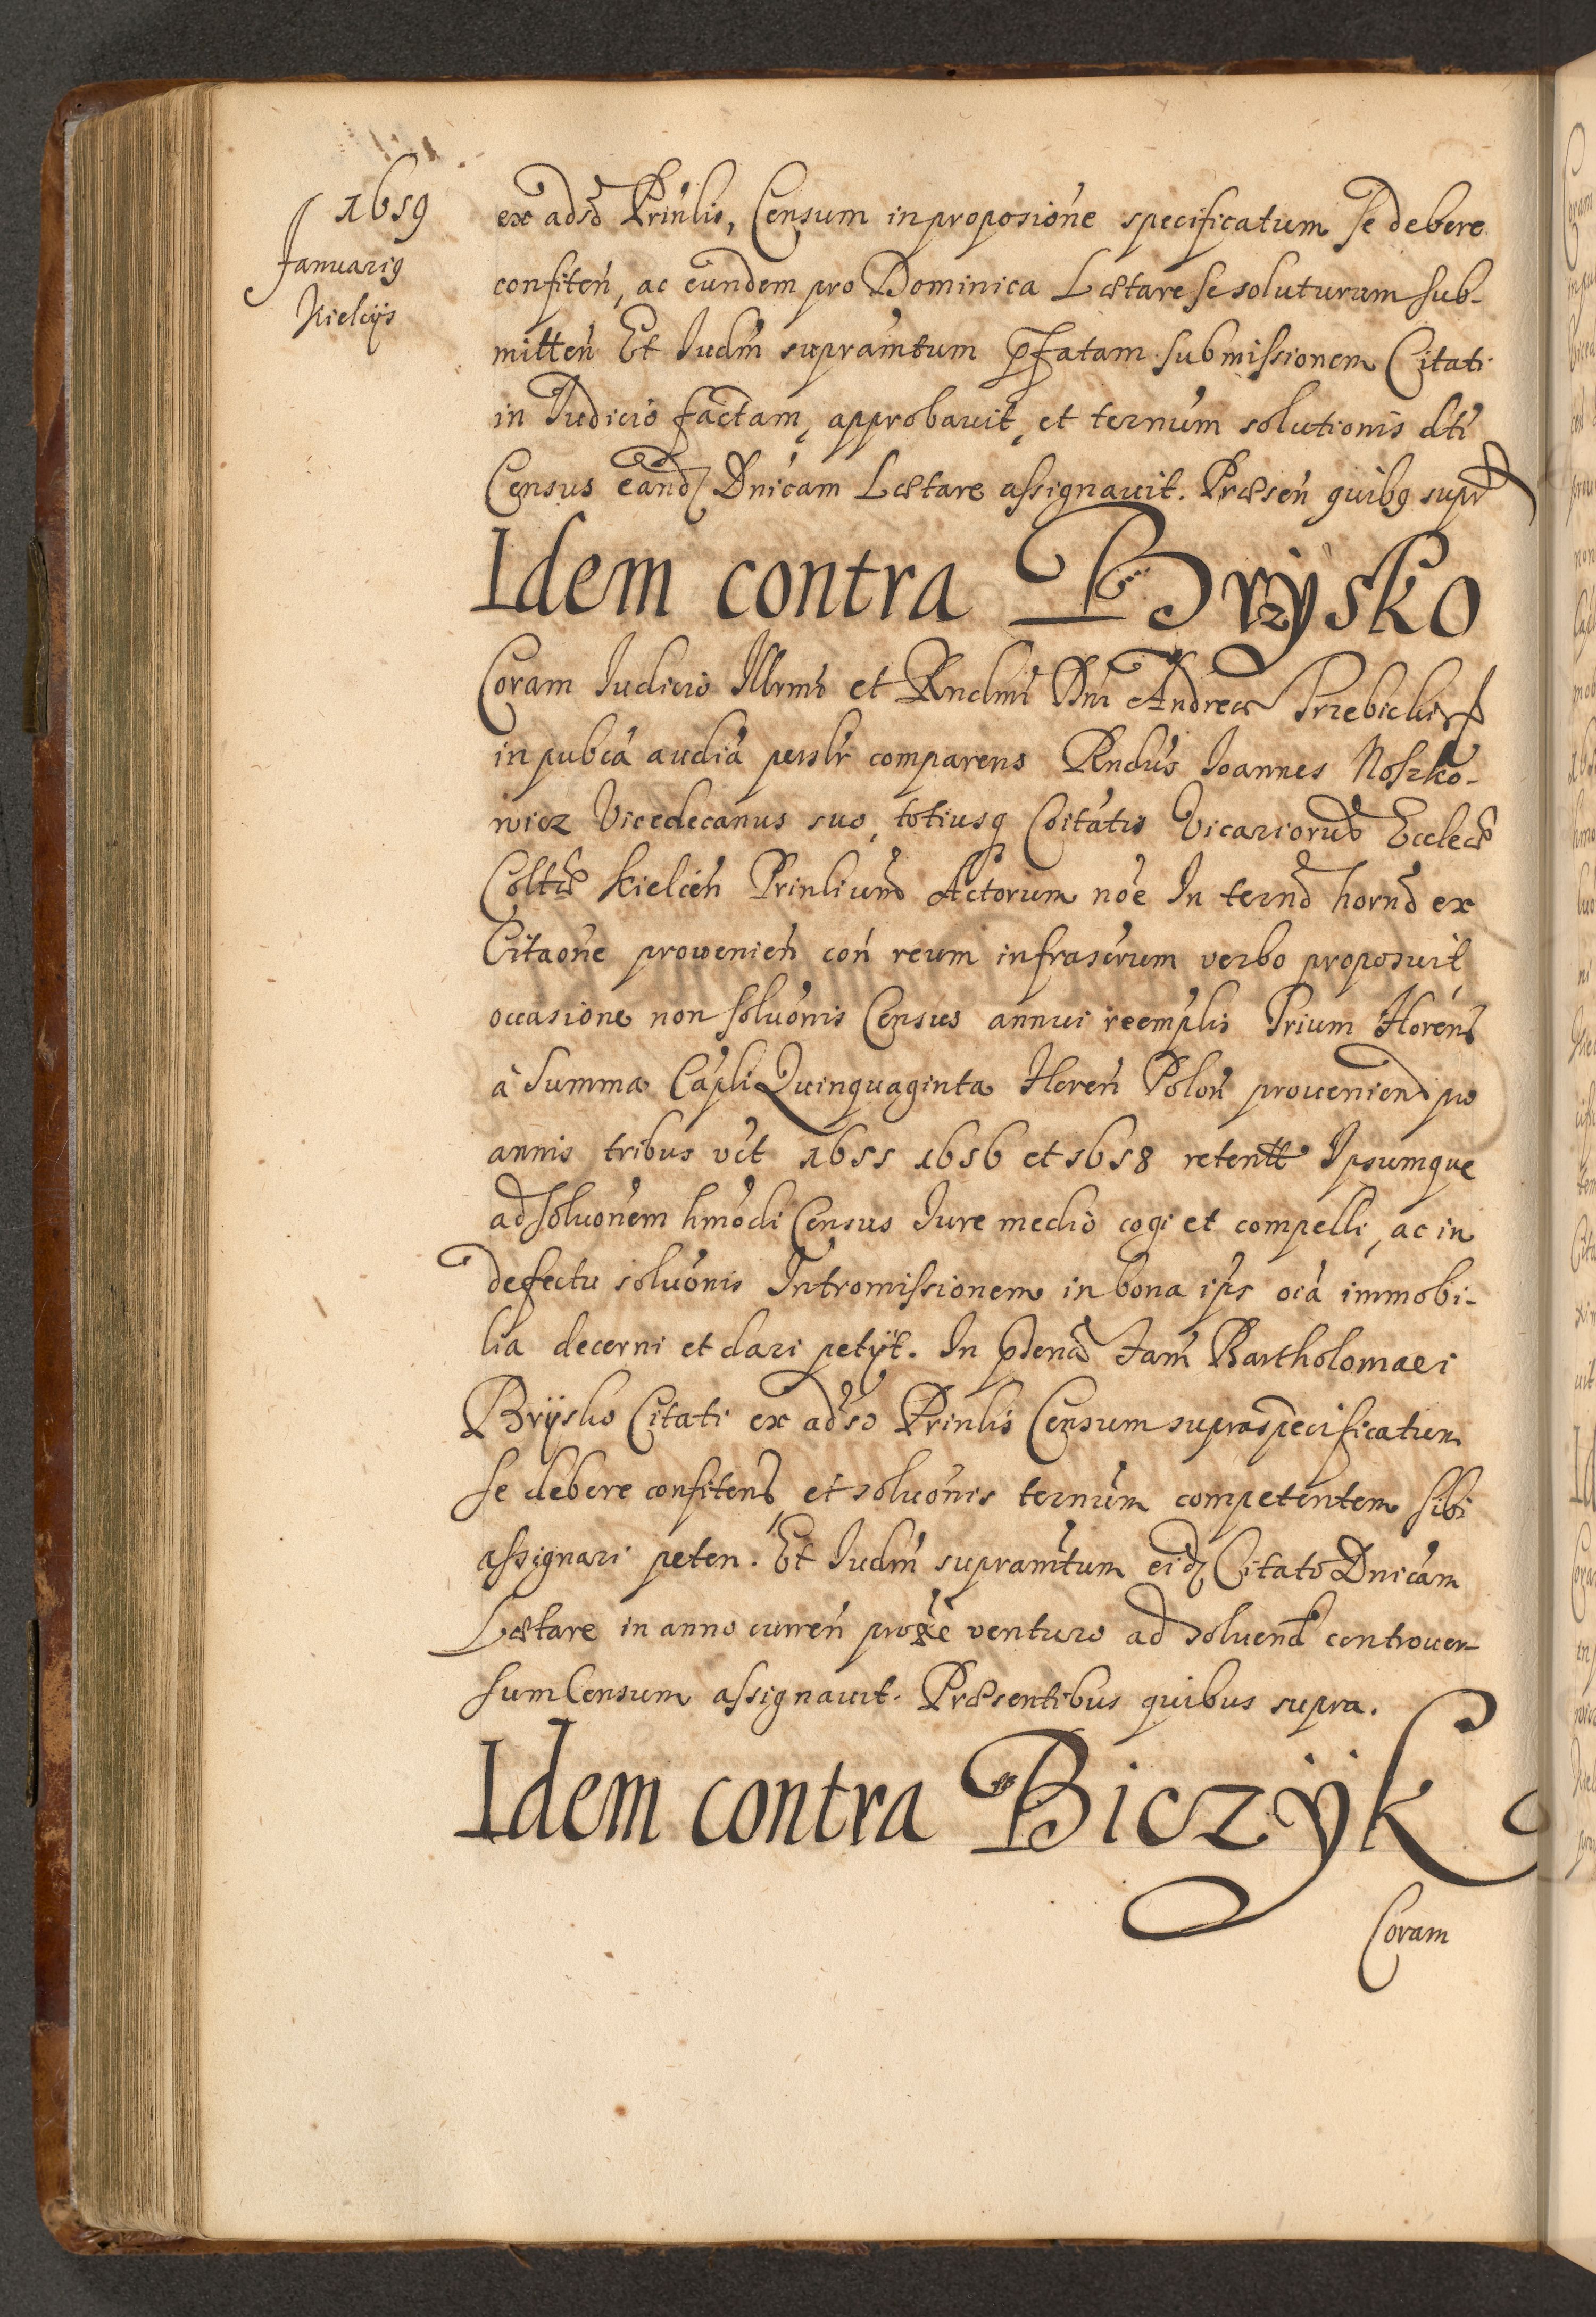 1659
Januarig
Kielcÿs
ex adsõ Prinlis, Censum in proposione specificatum se debere
confiten, ac eundem pro Dominica Lætare se soluturum sub-
mitten Et Iudm supramtum pfatam submissionem Citati
in Iudicio factam, approbavit, et ternum solutionis dti
Census eand Dnicam Lætare assignavit. Præsen quibg supr
Idem contra Brzysko
Coram Iudicio Illrmi et Rndmi Dni Andreæ Trzebicki
in pubca audia perslr comparens Rndus Ioannes Noszko-
wicz Vicedecanus suo, totiusq Coitatis Vicariorum Ecclæ
Coltæ Kielcen Prinlium Actorum noe In termo horno ex
Citaone prowenien con reum infrascrum verbo proposuit,
occasione non soluonis Census annui reemplis Trium Floren
à Summa Capli Quinquaginta Floren Polon provenien pro
annis tribus vct 1655 1656 et 1658 retent Ipsumque
ad soluonem hmodi Census Iure medio cogi et compelli, ac in
defectu soluonis Intromissionem in bona ips oia immobi-
lia decerni et dari petÿt. In pdena fam Bartholomaei
Brÿsko Citati ex adso Prinlis Censum supraspecificatum
se debere confiten et soluonis ternum competentem sibi
assignari peten. Et Iudm supramtum eid Citato Dnicam
Lætare in anno curren proxe venturo ad soluend controver-
sum Censum assignavit. Præsentibus quibus supra.
Idem contra Biczÿk
Coram